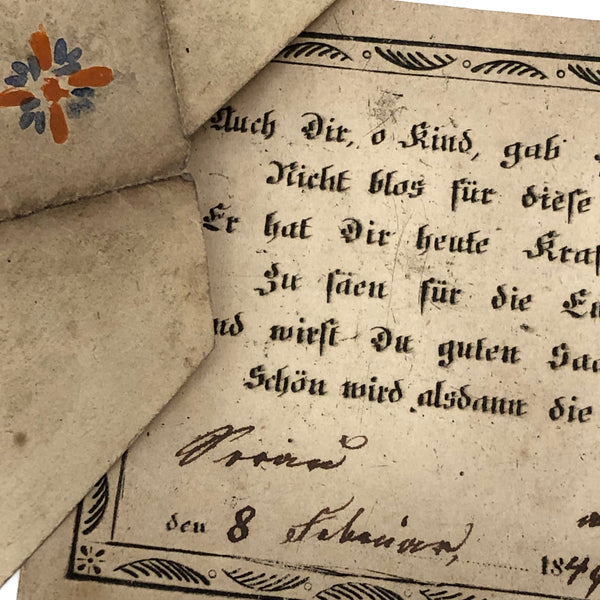 Auch Dir, o Kind, gab
Nicht blos für diese
Er hat Dir heute Kraf
Zu säen für die
nd wirst Du guten Saa
Schön wird alsdann die
Sorau
den 8 Februar, 184